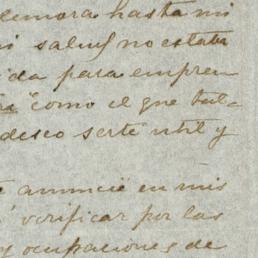 demora hasta mi
mi salud no estaba
ida para empren
" como el que tut-
deseo serte util y
anuncié en mis
verificar por las
y ocupaciones de